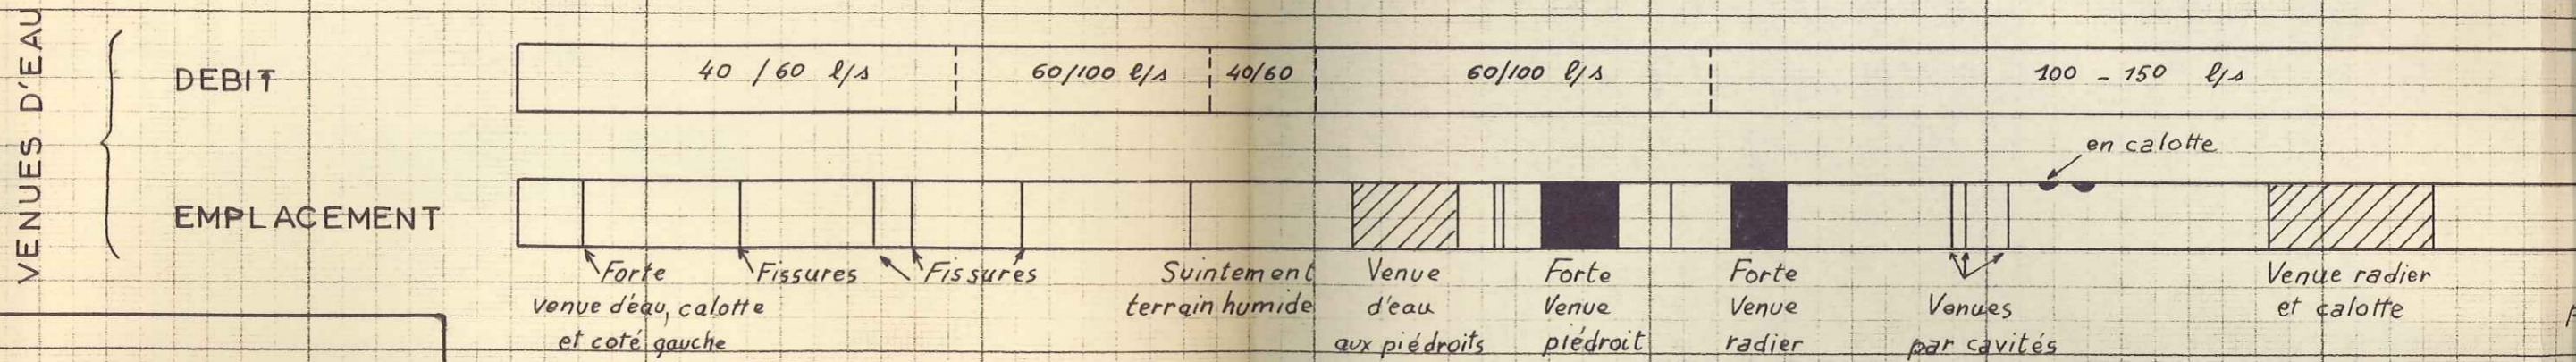 VENUES D'EAU
DEBIT
40 / 60 l/s
60/100 l/s
40/60
60/100 l/s
100 - 150 l/s
en calotte
EMPLACEMENT
Forte
venue d'eau, calotte
et coté gauche
Fissures
Fissures
Suintement
terrain humide
Venue
d'eau
aux piédroits
Forte
Venue
piédroit
Forte
Venue
radier
Venues
par cavités
Venue radier
et calotte